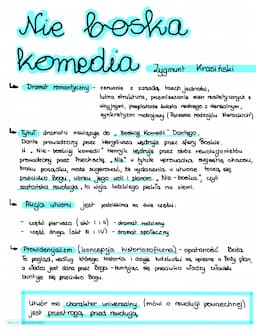 Nie boska
komedia
Zygmunt Krasiński
Dramat romantyczny - zerwanie z zasadą trzech jedności,
luźna struktura, przemieszanie scen realistycznych z
wizyjnymi, przeplatanie świata realnego z nierealnym,
synkretyzm rodzajowy (łączenie rodzajów literackich)
Tytuł dramatu nawiązuje do „Boskiej Komedii" Dantego.
Dante prowadzony przez Wergiliusza wędruje przez sferę Boskie,
w „Nie-boskiej komedii" Henryk wędruje przez obóz rewolucjonistów
prowadzony przez Przechrztę. „Nie" w tytule wprowadza sugestię chaosu,
braku porządku, może sugerować, że wydarzenia w utworze toczą się
przeciwko Bogu, wbrew jego woli i planom. „Nie-boska", czyli
szatańska rewolucja, to wizja ludzkiego piekła na ziemi.
Akcja utworu jest podzielona na dwie części:
- część pierwsza (akt I i II) - dramat rodzinny
- część druga (akt III i IV) - dramat społeczny
Prowidencjalizm (koncepcja historiozoficzna) - opatrzność Boża.
To pogląd, według którego historia i dzieje ludzkości są wpisane w Boży plan,
a władza jest dana przez Boga - buntując się przeciwko władzy człowiek
buntuje się przeciwko Bogu.
Utwór ma charakter uniwersalny (mówi o rewolucji powszechnej)
jest przestrogą przed rewolucją.